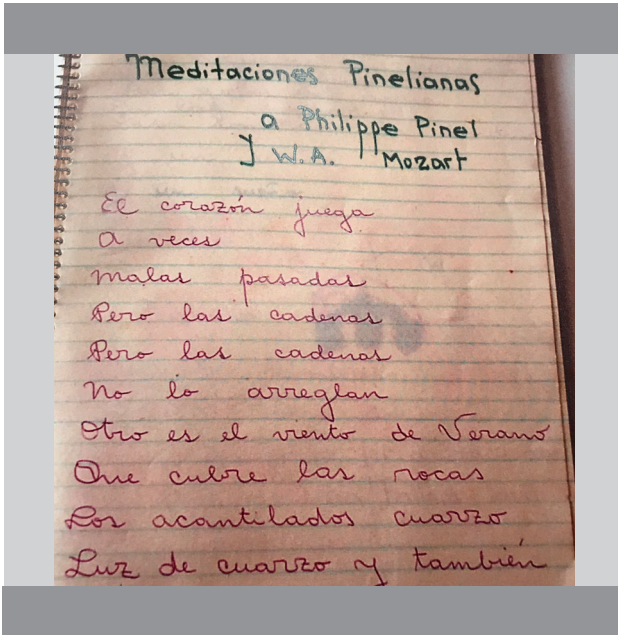 Meditaciones Pinelianas
a Philippe Pinel
y W.A. Mozart
El corazón juega
a veces
malas pasadas
Pero las cadenas
Pero las cadenas
No lo arreglan
Otro es el viento de Verano
Que cubre las rocas
Los acantilados cuarzo
Luz de cuarzo y también